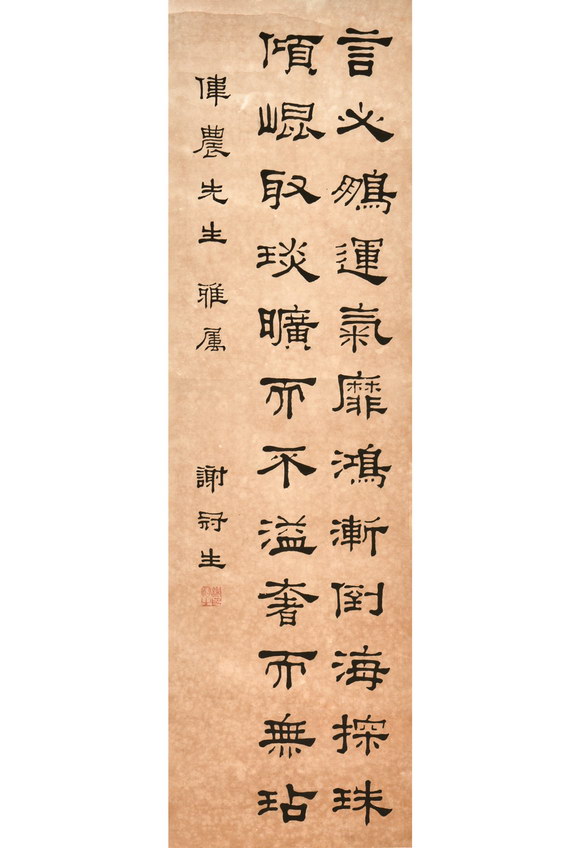 言必鵬運氣靡鴻漸倒海探珠
傾崐取琰曠而不溢奢而無玷
偉農先生 雅属
謝冠生